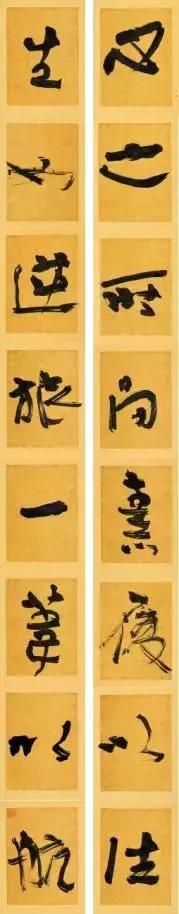 心之所向素履以往
生如逆旅一葦以航